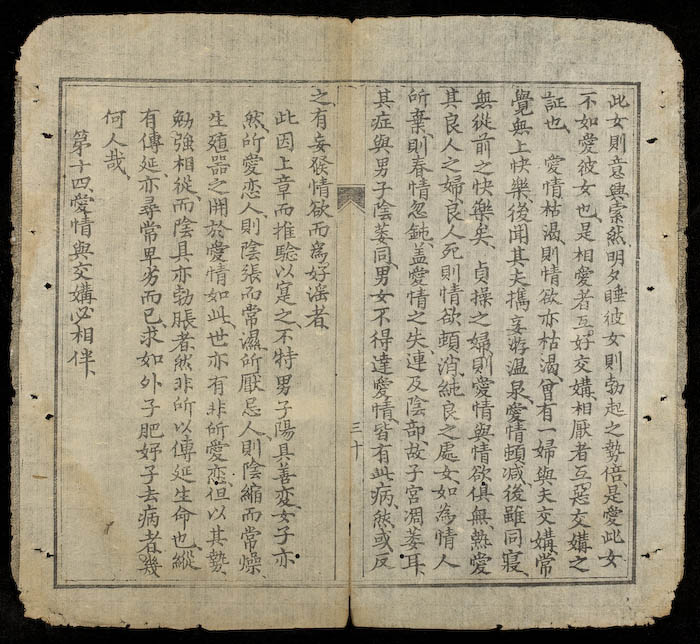 此女則意興索然明夕睡彼女則勃起之勢倍是愛此女
不如愛彼女也是相愛者互好交媾相厭者互惡交媾之
証也 愛情枯渴則情欲亦枯渴曾有一婦與夫交媾常
覺無上快樂後聞其夫携妾遊温泉愛情頓减後雖同寢
無從前之快樂矣 貞操之婦則愛情與情欲俱無熱愛
其良人之婦良人死則情欲頓消純良之處女如為情人
所棄則春情忽鈍盖愛情之失連及陰部故子宮凋萎耳
其症與男子陰萎同男女不得達愛情皆有此病然或反
三十
之有妄發情欲而為好淫者
此因上章而推騐以寔之不特男子陽具善変女子亦
然所愛恋人則陰張而常濕所厭忌人則陰縮而常燥
生殖器之開於愛情如此世亦有非所愛恋但以其勢
勉強相從而陰具亦勃脹者然非所以傳延生命也縱
有傳延亦尋常卑劣而已求如外子肥好子去病者幾
何人哉
第十四愛情與交媾必相伴